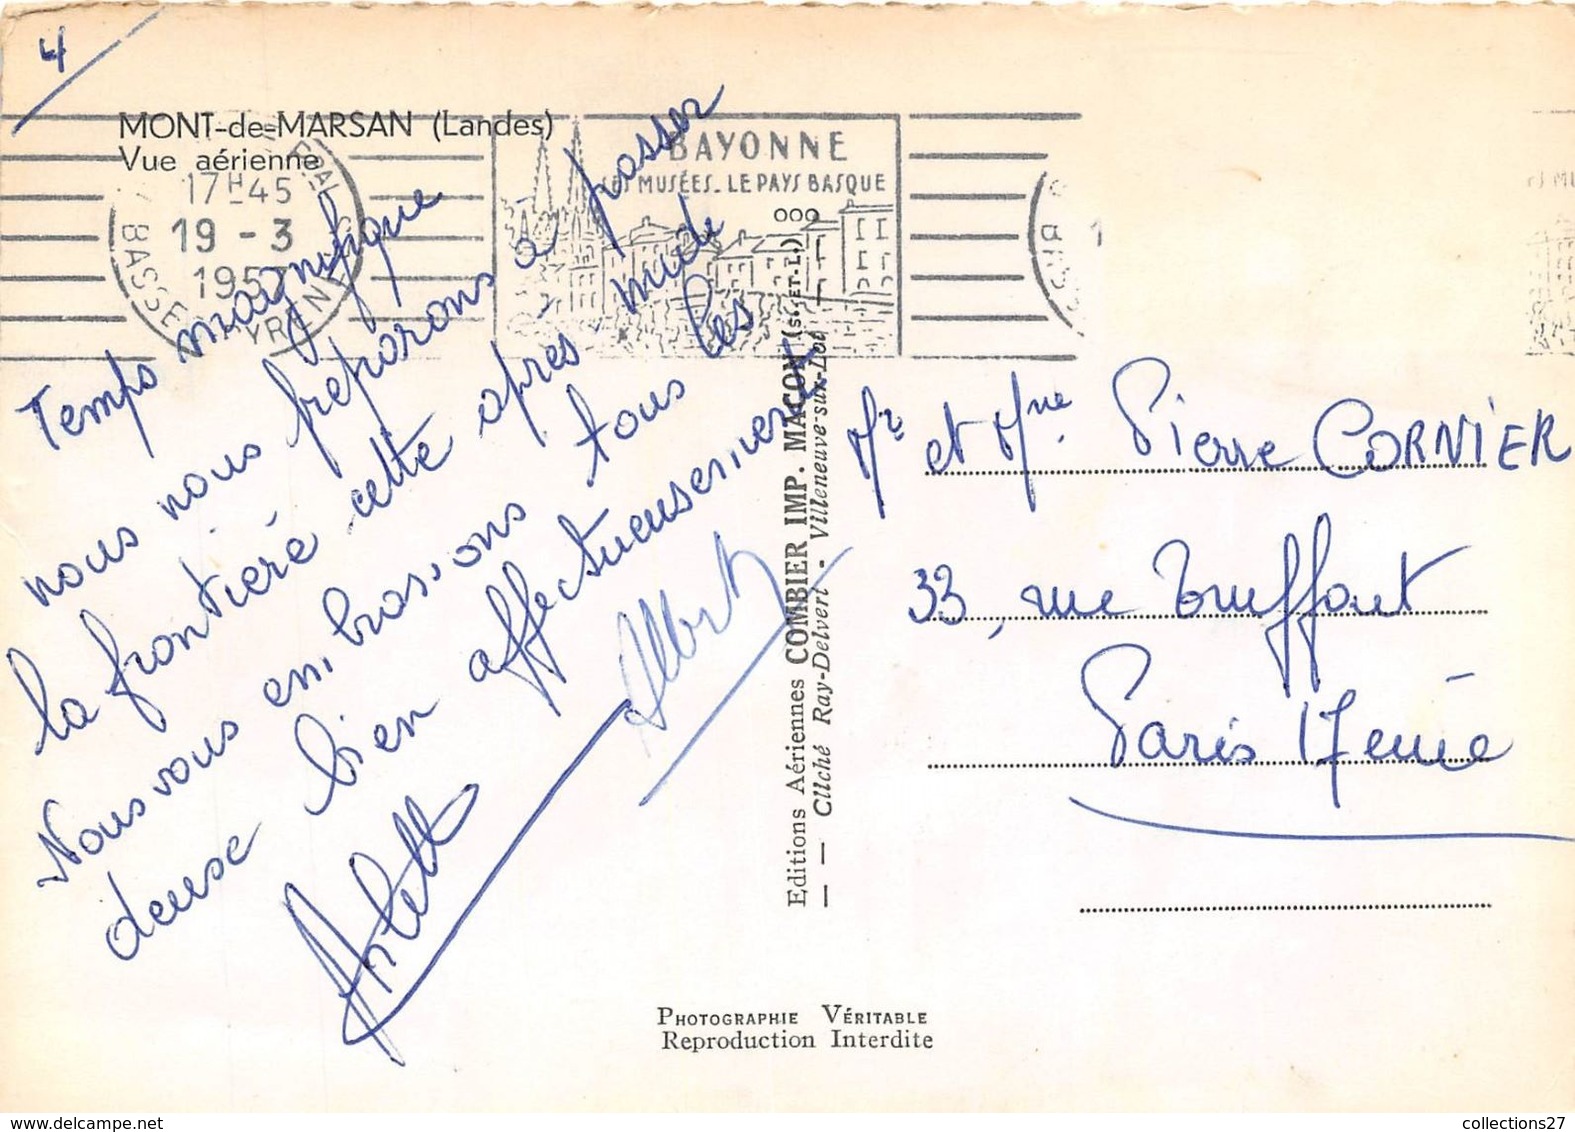 4
MONT-de-MARSAN (Landes)
Vue aérienne
17H45
19 - 3
195
BASSES
BAYONNE
SES MUSÉES. LE PAYS BASQUE
Temps magnifique
nous nous préparons à passer
la frontière cette après-midi
Nous vous embrassons tous les
deuse bien affectueusement
Arlette
Albert
ooo
Editions Aériennes COMBIER IMP. MACON (S.-ET-L.)
— — Cliché Ray-Delvert - Villeneuve-sur-Lot
Mr et Mme Pierre CORNIER
33, rue Truffaut
Paris 17eme
PHOTOGRAPHIE VÉRITABLE
Reproduction Interdite
collections27